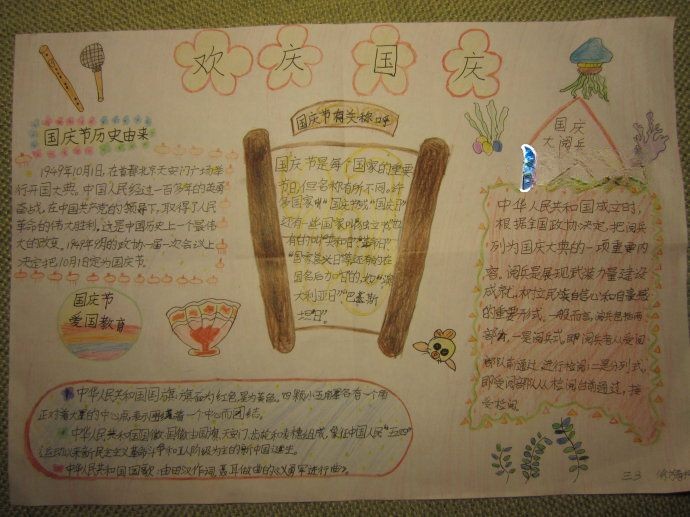 欢庆国庆
国庆节历史由来
1949年10月1日,在首都北京天安门广场举
行开国大典。中国人民经过一百多年的英勇
奋战,在中国共产党的领导下,取得了人民
革命的伟大胜利,这是中国历史上一个最伟
大的改变。1949年9月的政协一届一次会议上
决定把10月1日定为国庆节。
国庆节
爱国教育
国庆节有关称呼
国庆节是每个国家的重要
节日,但名称有所不同。许
多国家叫"国庆节"或"国庆日"
还有一些国家叫"独立日"也
有的叫"共和日""革命日"
"国家复兴日"等还有的在
国名后加"日"的,如"澳
大利亚日""巴基斯
坦日"。
国庆
大阅兵
中华人民共和国成立时,
根据全国政协决定,把阅兵
列为国庆大典的一项重要内
容。阅兵是展现武装力量建设
成就,树立民族自信心和自豪感
的重要形式,一般而言,阅兵包括两
部有,一是阅兵式,即阅兵者从受阅
部队前通过,进行检阅;二是分列式,
即受阅部队从检阅台前通过,接
受检阅
中华人民共和国国旗:旗面为红色,星为黄色。四颗小五角星各有一个角
正对着大星的中心点,表示围绕着一个中心而团结。
中华人民共和国国徽:国徽由国旗、天安门、齿轮和麦穗组成,象征中国人民"五四"
运动以来新民主主义革命斗争和工人阶级为主的新中国诞生。
中华人民共和国国歌:由田汉作词,聂耳做曲的《义勇军进行曲》。
三3